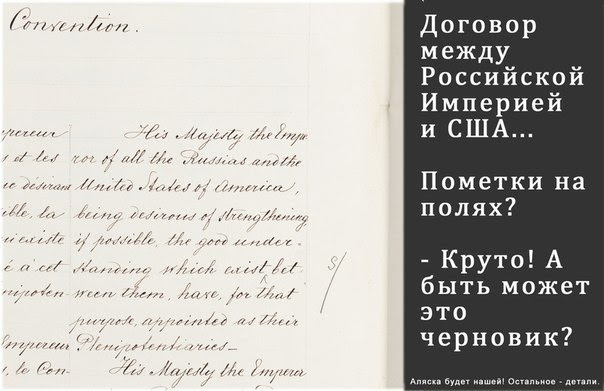 Convention.
pereur
s et les
ne désirant
ible, la
ui existe
é à cet
nipoten-
Empereur
, le Con-
His Majesty the Empe
ror of all the Russias and the
United States of America,
being desirous of strengthening
if possible, the good under-
standing which exist bet
ween them, have, for that
purpose, appointed as their
Plenipotentiaries—
His Majesty the Emperor
s/
Договор
между
Российской
Империей
и США...
Пометки на
полях?
- Круто! А
быть может
это
черновик?
Аляска будет нашей! Остальное - детали